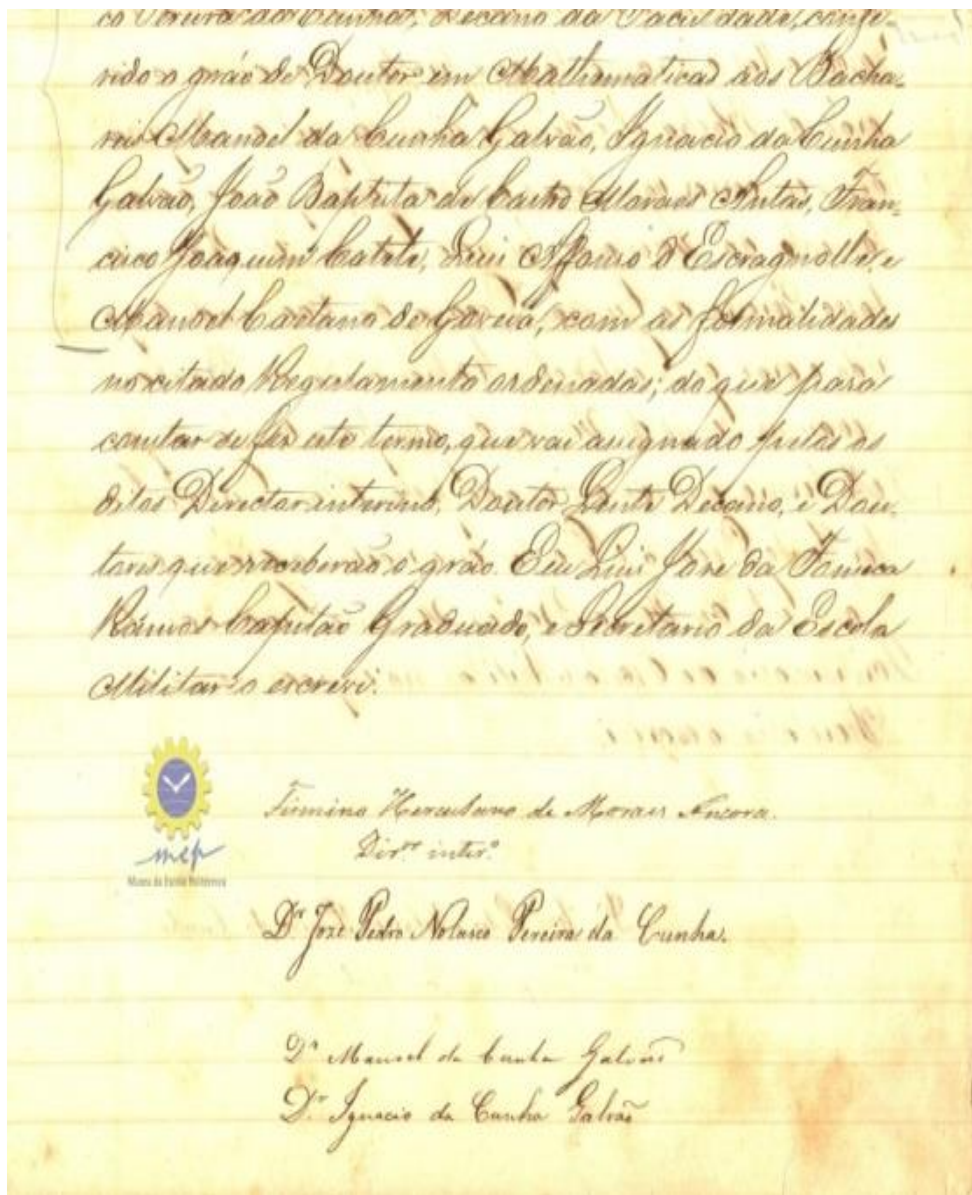 co Pereira da Cunha, Decano da Faculdade, confe-
rido o gráo de Doutor em Mathematicas aos Bacha-
reis Manoel da Cunha Galvão, Ignacio da Cunha
Galvão, João Baptista de Castro Moraes Antas, Fran-
cisco Joaquim Catete, Luis Affonso d'Escragnolle, e
Manoel Caetano de Gouvêa, com as formalidades
no citado Regulamento ordenadas; do que para
constar se fez este termo, que vai assignado pelos os
ditos Director interino, Doutor Lente Decano, e Dou-
tores que receberão o gráo. Eu Luis Jose da Fonseca
Ramos Capitão Graduado, e Secretario da Escola
Militar o escrevi.
mep
Museu da Escola Politécnica
Firmino Herculano de Moraes Ancora.
Dir.ᵒʳ inter.º
D.ʳ Joze Pedro Nolasco Pereira da Cunha.
D.ʳ Manoel da Cunha Galvão
D.ʳ Ignacio da Cunha Galvão